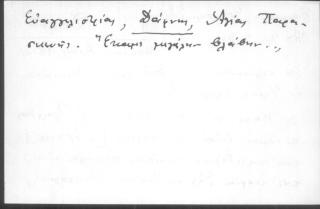 Εὐαγγελιστρίας, Δάφνης, Ἁγίας Παρα-
σκευῆς. "Ἔκαμε μεγάλην βλάβην..,